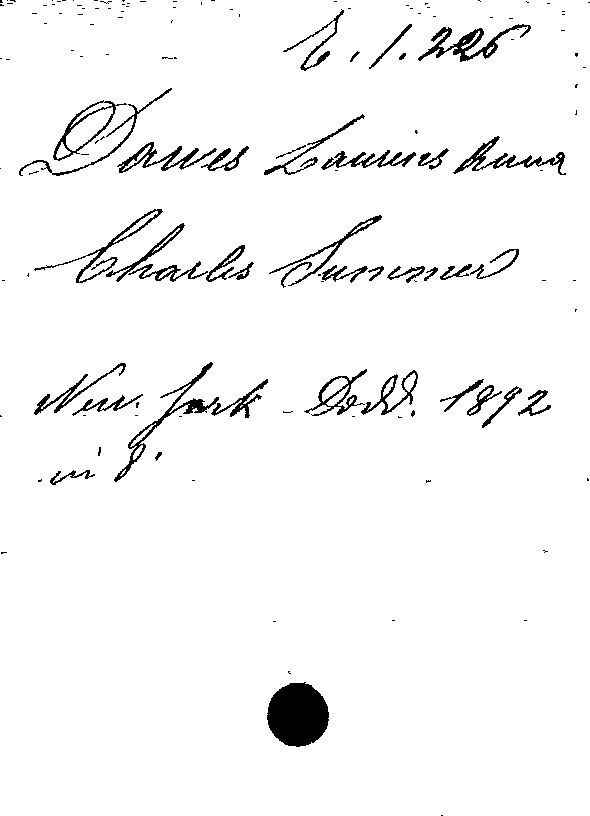 E. 1. 226
Dawes Laurens Anna
Charles Sumner
New. York Dodd. 1892
in 8.